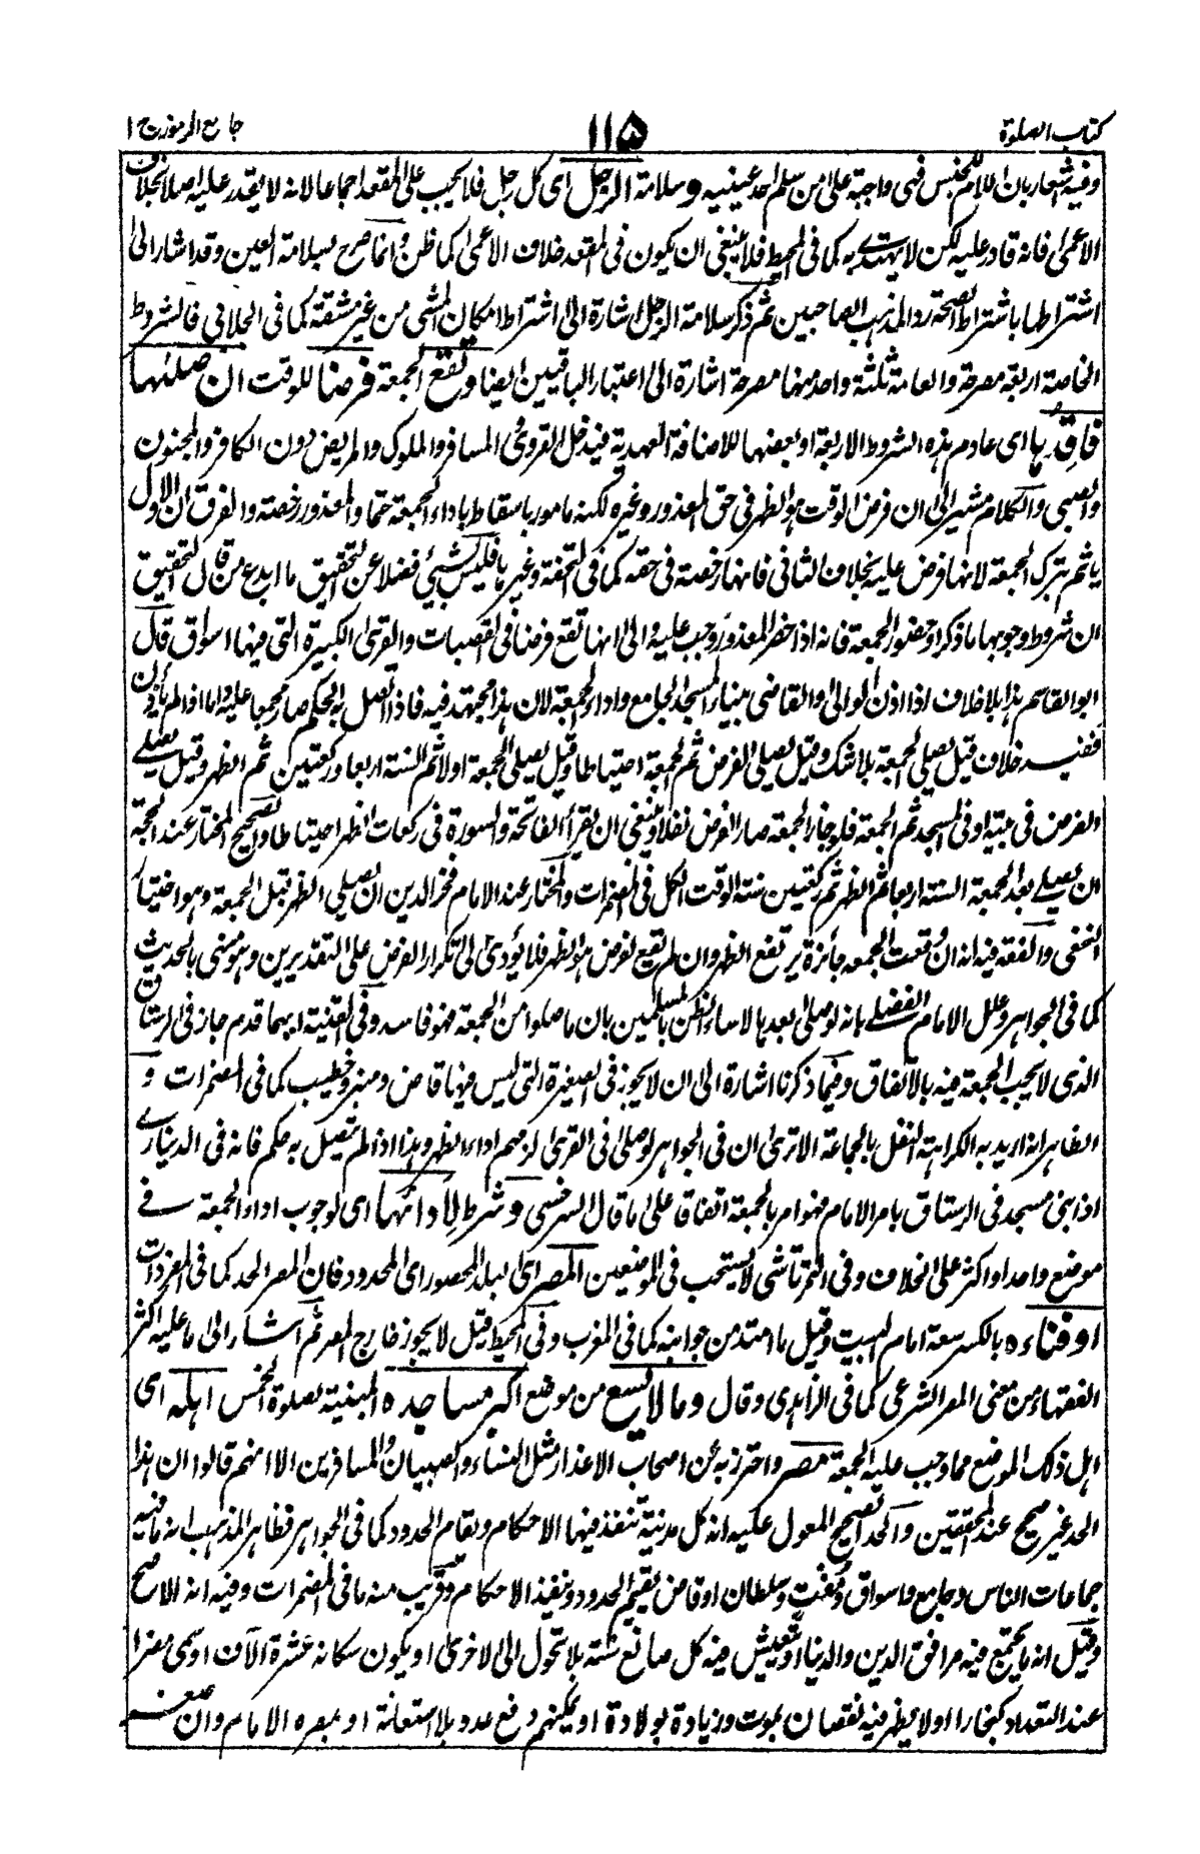 كتاب الصلوة
١١۵
جامع الرموز ج ١
وفيه اشعار بان اللام للجنس فهى واجبة على من سلم احد عينيه وسلامة الرجل اى كل رجل فلا يجب على المقعد اجماعا لانه لا يقدر عليه اصلا بخلاف
الاعمى فانه قادر عليه لكن لا يهتدى به كما فى المحيط فلا ينبغى ان يكون فى المقعد خلاف الاعمى كما ظن وانما صرح بسلامة العين وقد اشار الى
اشتراطها باشتراط الصحة رد المذهب الصاحبين ثم ذكر سلامة الرجل اشارة الى اشتراط امكان المشى من غير مشقة كما فى الجلابى فالشروط
الخاصة اربعة مصرحة والعامة ثلثة واحد منها مصرحة اشارة الى اعتبار الباقيين ايضا وتقع الجمعة فرضا للوقت ان صلىها
فاقدها اى عادم هذه الشروط الاربعة او بعضها للاضافة العهدية فيدخل القروى المسافر والملوك والمريض دون الكافر والمجنون
والصبى والكلام مشير الى ان فرض الوقت هو الظهر فى حق المعذور وغيره لكنه مامور باسقاط باداء الجمعة حتما والمعذور رخصة والفرق ان الاول
ياثم بترك الجمعة لانها فرض عليه بخلاف الثانى فانها رخصة فى حقه كما فى التحفة وغيرها فليس بشئ فضلا عن التحقيق ما ابدع من قال التحقيق
ان شروط وجوبها ما ذكر او حضور الجمعة فانه اذا حضر المعذور وجب عليه والى انها تقع فرضا فى القصبات والقرى الكبيرة التى فيها اسواق قال
ابو القاسم هذا بلا خلاف اذا اذن الوالى والقاضى ببناء المسجد الجامع واداء الجمعة لان هذا مجتهد فيه فاذا اتصل به الحكم صار مجمعا عليه واما اذا لم يأذن
ففيه خلاف قيل يصلى الجمعة بلا شك وقيل يصلى الفرض ثم الجمعة احتياطا وقيل يصلى الجمعة اولا ثم السنة اربعا وركعتين ثم الظهر وقيل يصلى
الفرض فى بيته او فى المسجد ثم الجمعة فلو جاز الجمعة صار الفرض نفلا وينبغى ان يقرأ الفاتحة والسورة فى ركعات الظهر احتياطا والصحيح المختار عند الحجة
ان يصلى بعد الجمعة السنة اربعا ثم الظهر ثم ركعتين سنة الوقت الكل فى المضمرات والمختار عند الامام فخر الدين ان يصلى الظهر قبل الجمعة وهو اختيار
النخعى والفقه فيه انه ان وقعت الجمعة جائزة يرتفع الظهر وان لم يقع لفرض هو الظهر فلا يؤدى الى تكرار الفرض على التقديرين وهو منهى بالحديث
كما فى الجواهر وعلل الامام الفضلى بانه لو صلى بعدها لاساء الظن بالمسلمين بان ما صلوا من الجمعة فهو فاسد وفى القنية ايهما قدم جاز فى الرستاق
الذى لا يجب الجمعة فيه بالاتفاق وفيما ذكرنا اشارة الى ان لا يجوز فى الصغيرة التى ليس فيها قاض ومنبر وخطيب كما فى المضمرات و
الظاهر انه اريد به الكراهة النفل بالجماعة الا ترى ان فى الجواهر لو صلى فى القرى لزمهم اداء الظهر وهذا اذا لم يتصل به حكم فانه فى الدينارى
اذا بنى مسجد فى الرستاق بامر الامام فهو امر بالجمعة اتفاقا على ما قال السرخسى وشرط لادائها اى لوجوب اداء الجمعة فى
موضع واحد او اكثر على الخلاف وفى التمرتاشى لا يستحب فى الموضعين المصر اى البلد المحصور اى المحدود فان المصر الحد كما فى المفردات
او فناءه بالكسر سعة امام البيت وقيل ما امتد من جوانبه كما فى المغرب وفى المحيط قيل لا يجوز خارج المصر ثم اشار الى ما عليه اكثر
الفقهاء من معنى المصر الشرعى كما فى الزاهدى وقال وما لا يسع من موضع اكبر مساجده المبنية لصلوة الخمس اهله اى
اهل ذلك الموضع مما وجب عليه الجمعة مصر واحترز به عن اصحاب الاعذار مثل النساء والصبيان والمسافرين الا انهم قالوا ان هذا
الحد غير صحيح عند المحققين والحد الصحيح المعول عليه انه كل مدينة تنفذ فيها الاحكام ويقام الحدود كما فى الجواهر فظاهر المذهب انه ما فيه
جماعات الناس وجامع واسواق ومفت وسلطان او قاض يقيم الحدود وينفذ الاحكام وقريب منه ما فى المضمرات وفيه انه الاصح
وقيل انه ما يجتمع فيه مرافق الدين والدنيا او يتعيش فيه كل صانع سنة بلا تحول الى الاخرى او يكون سكانه عشرة آلاف او يسمى مصرا
عند التعداد كبخارا او لا يظهر فيه نقصان بموت وزيادة بولادة او يمكنهم دفع عدو بلا استعانة او بمصره الامام وان صغر